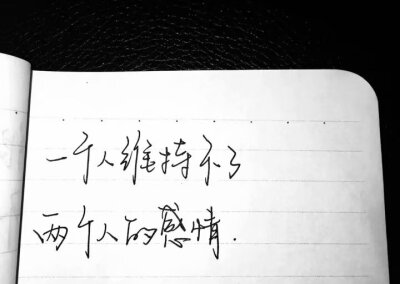 一个人维持不了
两个人的感情.